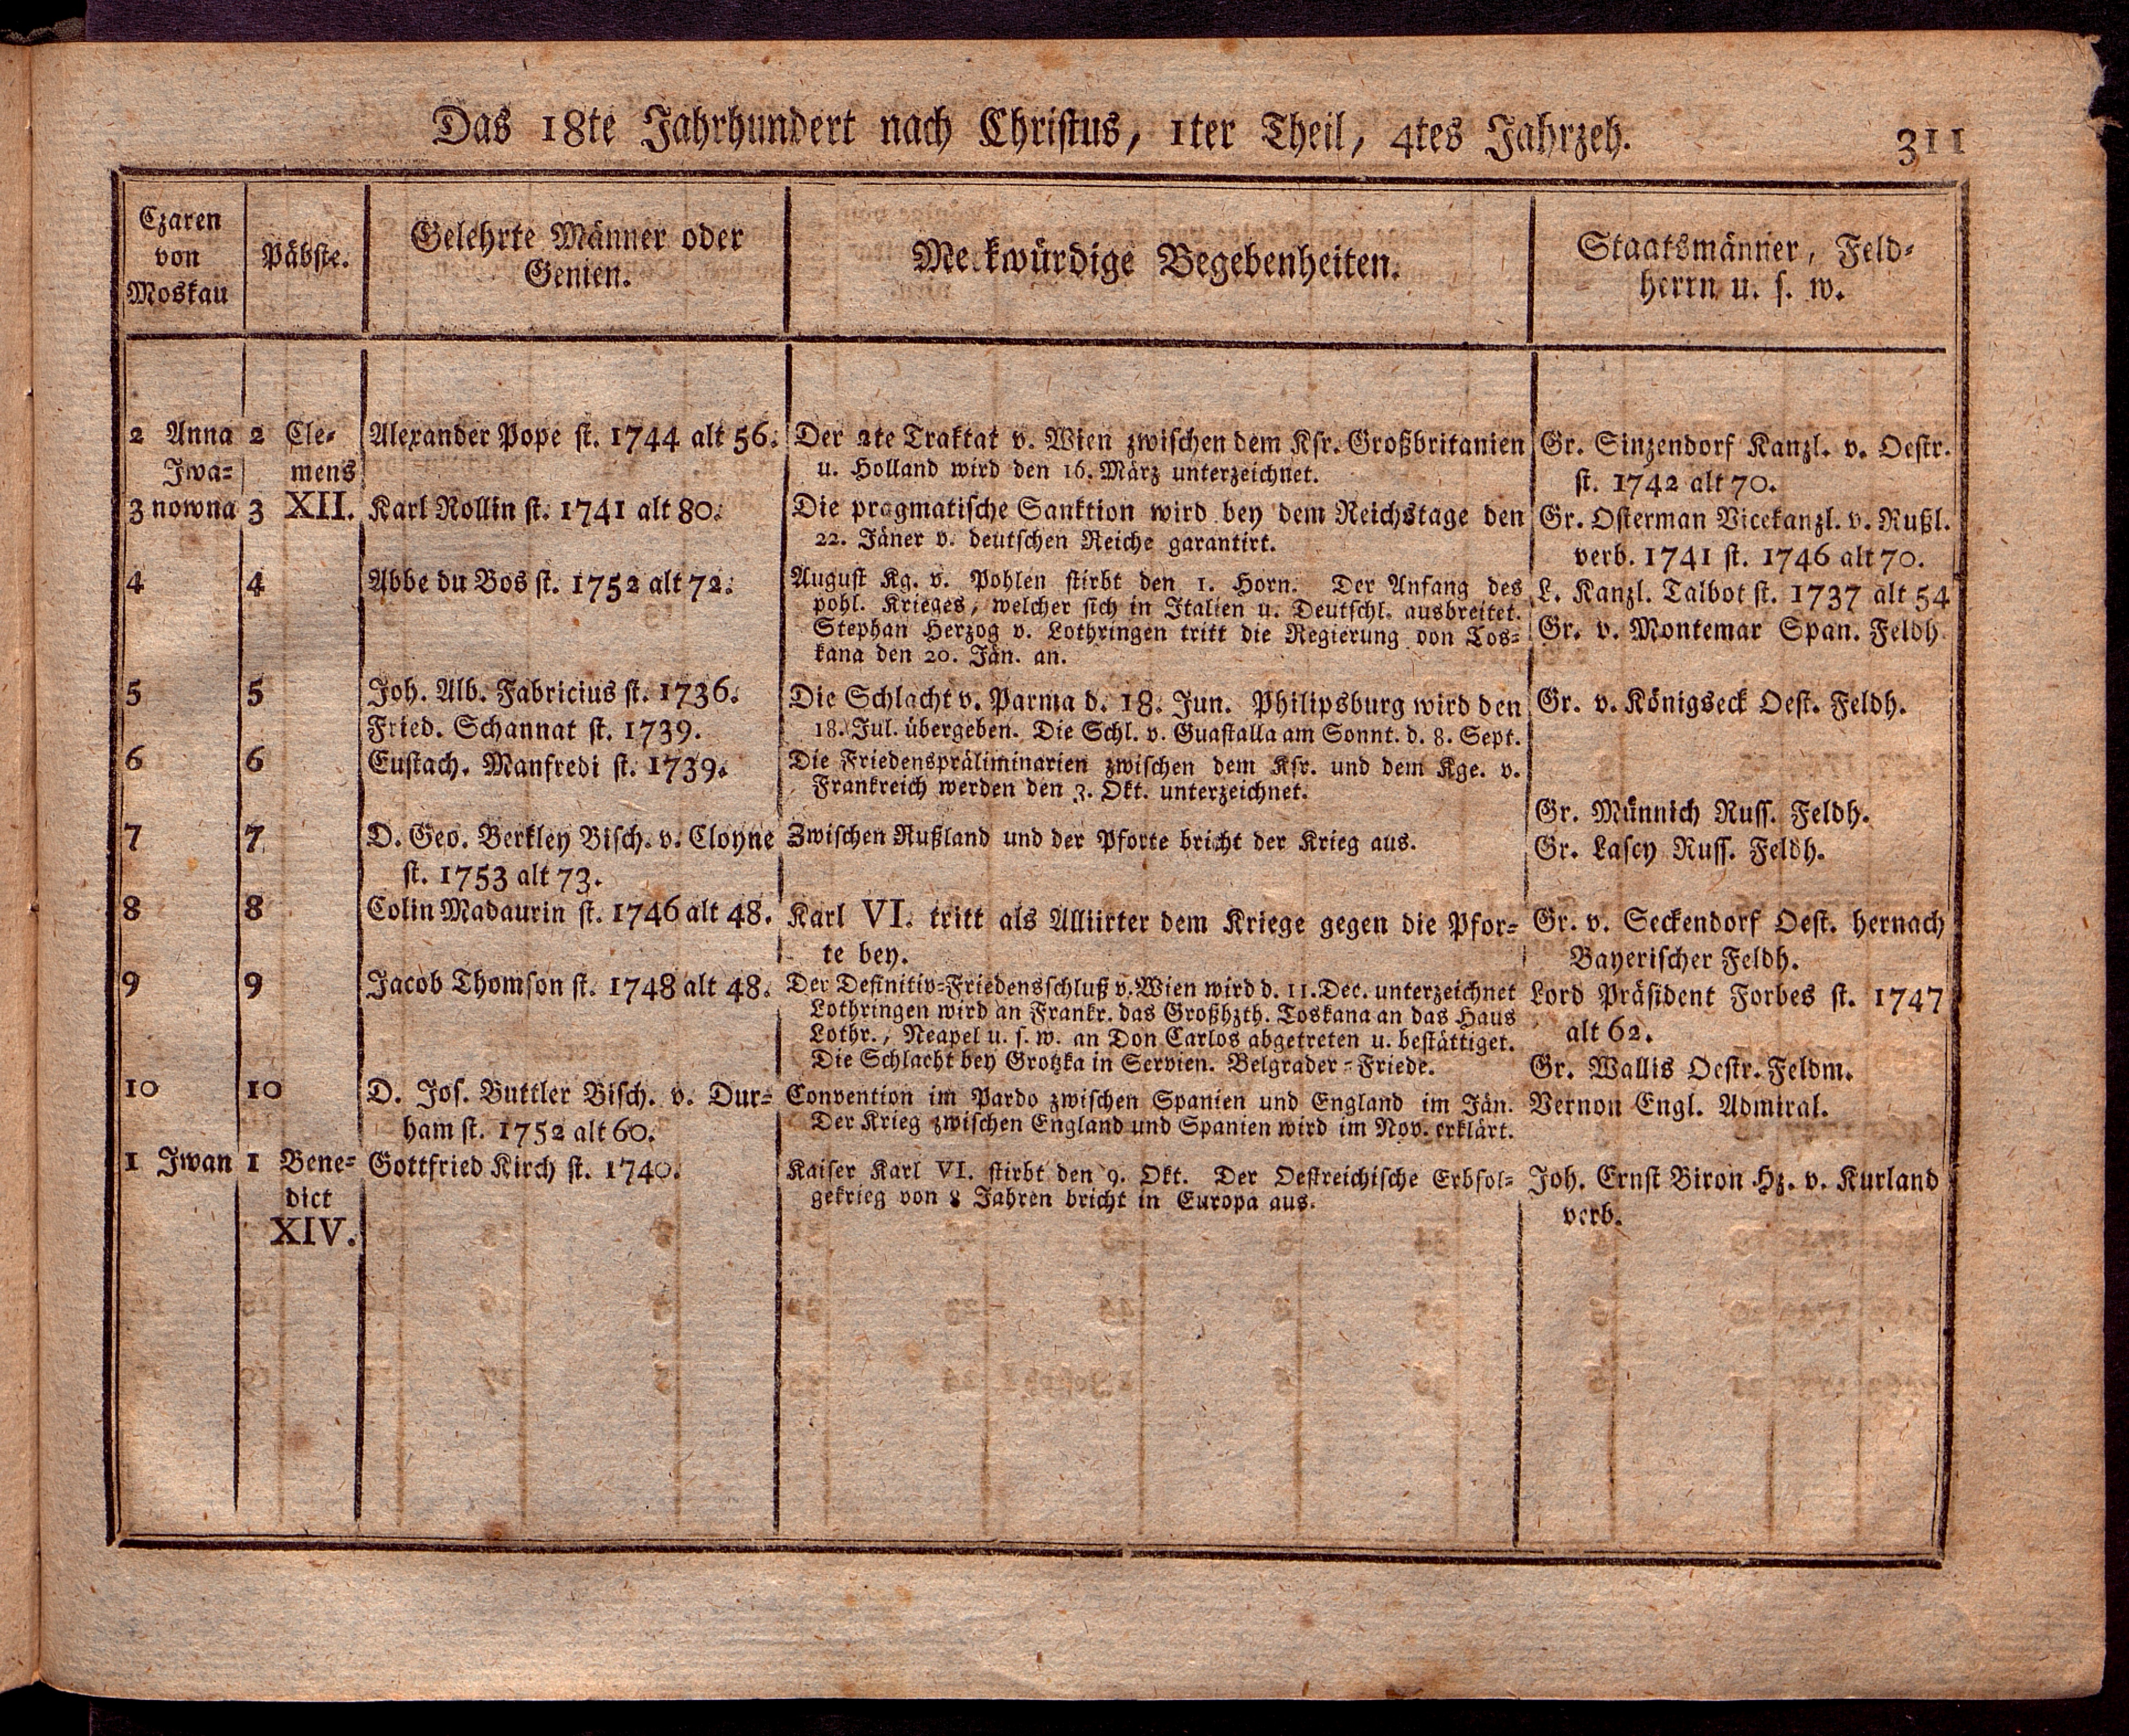 Das 18te Jahrhundert nach Christus, 1ter Theil, 4tes Jahrzeh.
311
Czaren
von
Moskau
Päbste.
Gelehrte Männer oder
Genien.
Me kwürdige Begebenheiten.
Staatsmänner, Feld-
herrn u. s. w.
2 Anna
Iwa-
3 nowna
4
5
6
7
8
9
10
1 Iwan
2 Cle-
mens
3 XII.
4
5
6
7
8
9
10
1 Bene-
dict
XIV.
Alexander Pope st. 1744 alt 56.
Karl Rollin st. 1741 alt 80.
Abbe du Bos st. 1752 alt 72.
Joh. Alb. Fabricius st. 1736.
Fried. Schannat st. 1739.
Eustach. Manfredi st. 1739.
D. Geo. Berkley Bisch. v. Cloyne
st. 1753 alt 73.
Colin Madaurin st. 1746 alt 48.
Jacob Thomson st. 1748 alt 48.
D. Jos. Buttler Bisch. v. Dur-
ham st. 1752 alt 60.
Gottfried Kirch st. 1740.
Der 2te Traktat v. Wien zwischen dem Ksr. Großbritanien
u. Holland wird den 16. März unterzeichnet.
Die pragmatische Sanktion wird bey dem Reichstage den
22. Jäner v. deutschen Reiche garantirt.
August Kg. v. Pohlen stirbt den 1. Horn. Der Anfang des
pohl. Krieges, welcher sich in Italien u. Deutschl. ausbreitet.
Stephan Herzog v. Lothringen tritt die Regierung von Tos-
kana den 20. Jän. an.
Die Schlacht v. Parma d. 18. Jun. Philipsburg wird den
18. Jul. übergeben. Die Schl. v. Guastalla am Sonnt. d. 8. Sept.
Die Friedenspräliminarien zwischen dem Ksr. und dem Kge. v.
Frankreich werden den 3. Okt. unterzeichnet.
Zwischen Rußland und der Pforte bricht der Krieg aus.
Karl VI. tritt als Alliirter dem Kriege gegen die Pfor-
te bey.
Der Definitiv-Friedensschluß v. Wien wird d. 11. Dec. unterzeichnet
Lothringen wird an Frankr. das Großhzth. Toskana an das Haus
Lothr., Neapel u. s. w. an Don Carlos abgetreten u. bestättiget.
Die Schlacht bey Grotzka in Servien. Belgrader-Friede.
Convention im Pardo zwischen Spanien und England im Jän.
Der Krieg zwischen England und Spanien wird im Nov. erklärt.
Kaiser Karl VI. stirbt den 9. Okt. Der Oestreichische Erbfol-
gekrieg von 8 Jahren bricht in Europa aus.
Gr. Sinzendorf Kanzl. v. Oestr.
st. 1742 alt 70.
Gr. Osterman Vicekanzl. v. Rußl.
verb. 1741 st. 1746 alt 70.
L. Kanzl. Talbot st. 1737 alt 54
Gr. v. Montemar Span. Feldh.
Gr. v. Königseck Oest. Feldh.
Gr. Münnich Russ. Feldh.
Gr. Lascy Russ. Feldh.
Gr. v. Seckendorf Oest. hernach
Bayerischer Feldh.
Lord Präsident Forbes st. 1747
alt 62.
Gr. Wallis Oestr. Feldm.
Vernon Engl. Admiral.
Joh. Ernst Biron Hz. v. Kurland
verb.